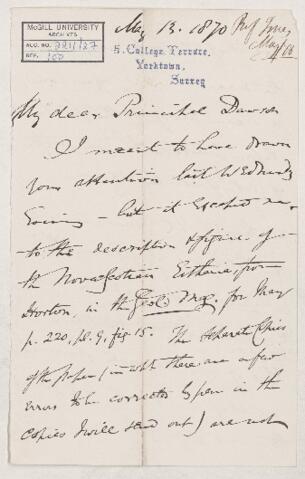 McGILL UNIVERSITY
ARCHIVES
ACC. NO. 2211/27
REF. 100
May 13. 1870
Prof Jones
May
5. College Terrace,
Yorktown,
Surrey
My dear Principal Dawson
I meant to have drawn
your attention last Wednesday
Evening – but it escaped me –
to the description & figure of
the Nova Scotian Estheria, from
Horton, in the Geol Mag. for May
p. 220, pl. 9, fig. 15. The separate Copies
of the paper (in wch there are a few
errors to be corrected by pen in the
copies I will send out) are not